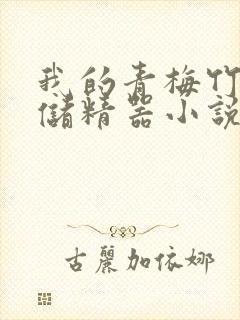 我的青梅竹
儲精器小說
古麗加依娜